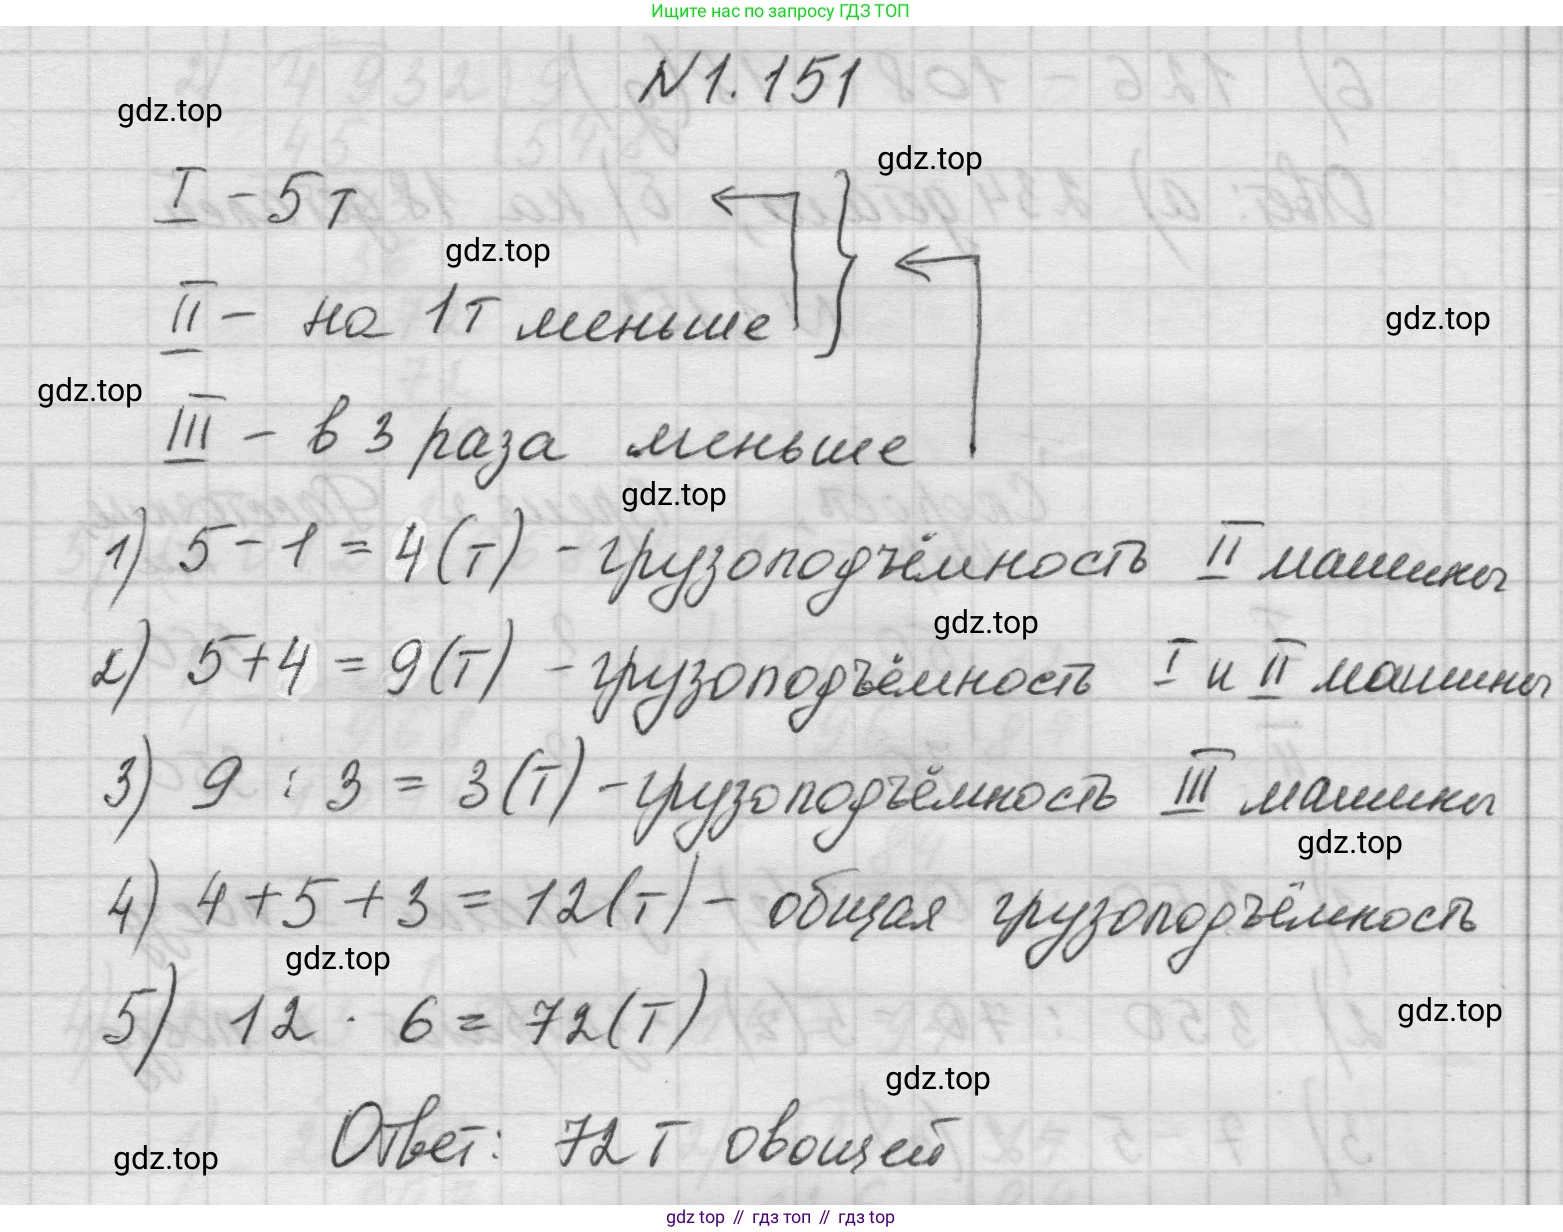 Ищите нас по запросу ГДЗ ТОП
N1.151
gdz.top
gdz.top
I - 5 т
gdz.top
II - на 1 т меньше
gdz.top
gdz.top
III - в 3 раза меньше
gdz.top
1) 5 - 1 = 4 (т) - грузоподъёмность II машины
gdz.top
2) 5 + 4 = 9 (т) - грузоподъёмность I и II машины
3) 9 : 3 = 3 (т) - грузоподъёмность III машины
gdz.top
4) 4 + 5 + 3 = 12 (т) - общая грузоподъёмность
gdz.top
5) 12 · 6 = 72 (т)
gdz.top
gdz.top
Ответ: 72 т овощей
gdz.top
gdz top // гдз топ // гдз top